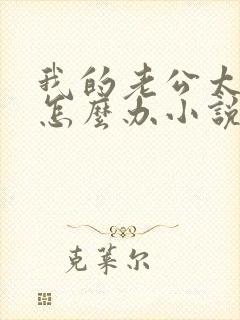 我的老公太
怎麼办小說
克莱尔